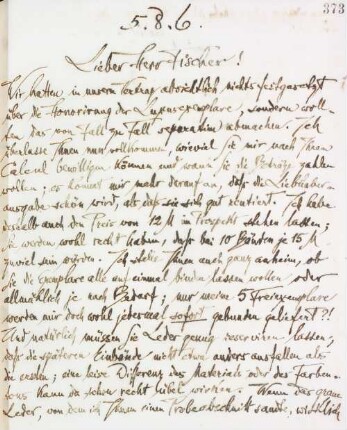 373
5. 8. 6.
Lieber Herr Fischer!
Wir hatten in unserm Vertrag absichtlich nichts festgesetzt
über die Honorirung der Luxusexemplare, sondern woll-
ten das von Fall zu Fall separatim abmachen. Ich
überlasse Ihnen nun vollkommen, wieviel Sie mir nach Ihrem
Calcul bewilligen können und wann Sie die Beträge zahlen
wollen; es kommt mir mehr darauf an, daß die Liebhaber-
ausgabe schön wird, als daß sie sich gut rentiert. Ich habe
deshalb auch den Preis von 12 M im Prospekt stehen lassen;
Sie werden wohl recht haben, daß bei 10 Bänden je 15 M
zuviel sein würden. Ich stelle Ihnen auch ganz anheim, ob
Sie die Exemplare alle auf einmal binden lassen wollen oder
allmählich je nach Bedarf; nur meine 5 Freiexemplare
werden mir doch wohl jedesmal sofort gebunden geliefert?!
Und natürlich müssen Sie Leder genug reservieren lassen,
daß die späteren Einbände nicht etwa anders ausfallen als
die ersten; eine leise Differenz des Materials oder des Farben-
tons kann da schon recht übel wirken. Wenn das graue
Leder, von dem ich Ihnen einen Probeabschnitt sandte, wirklich